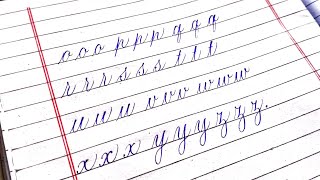 o o o p p p q q q
r r r s s s t t t
u u u v v v w w w
x x x y y y z z z.